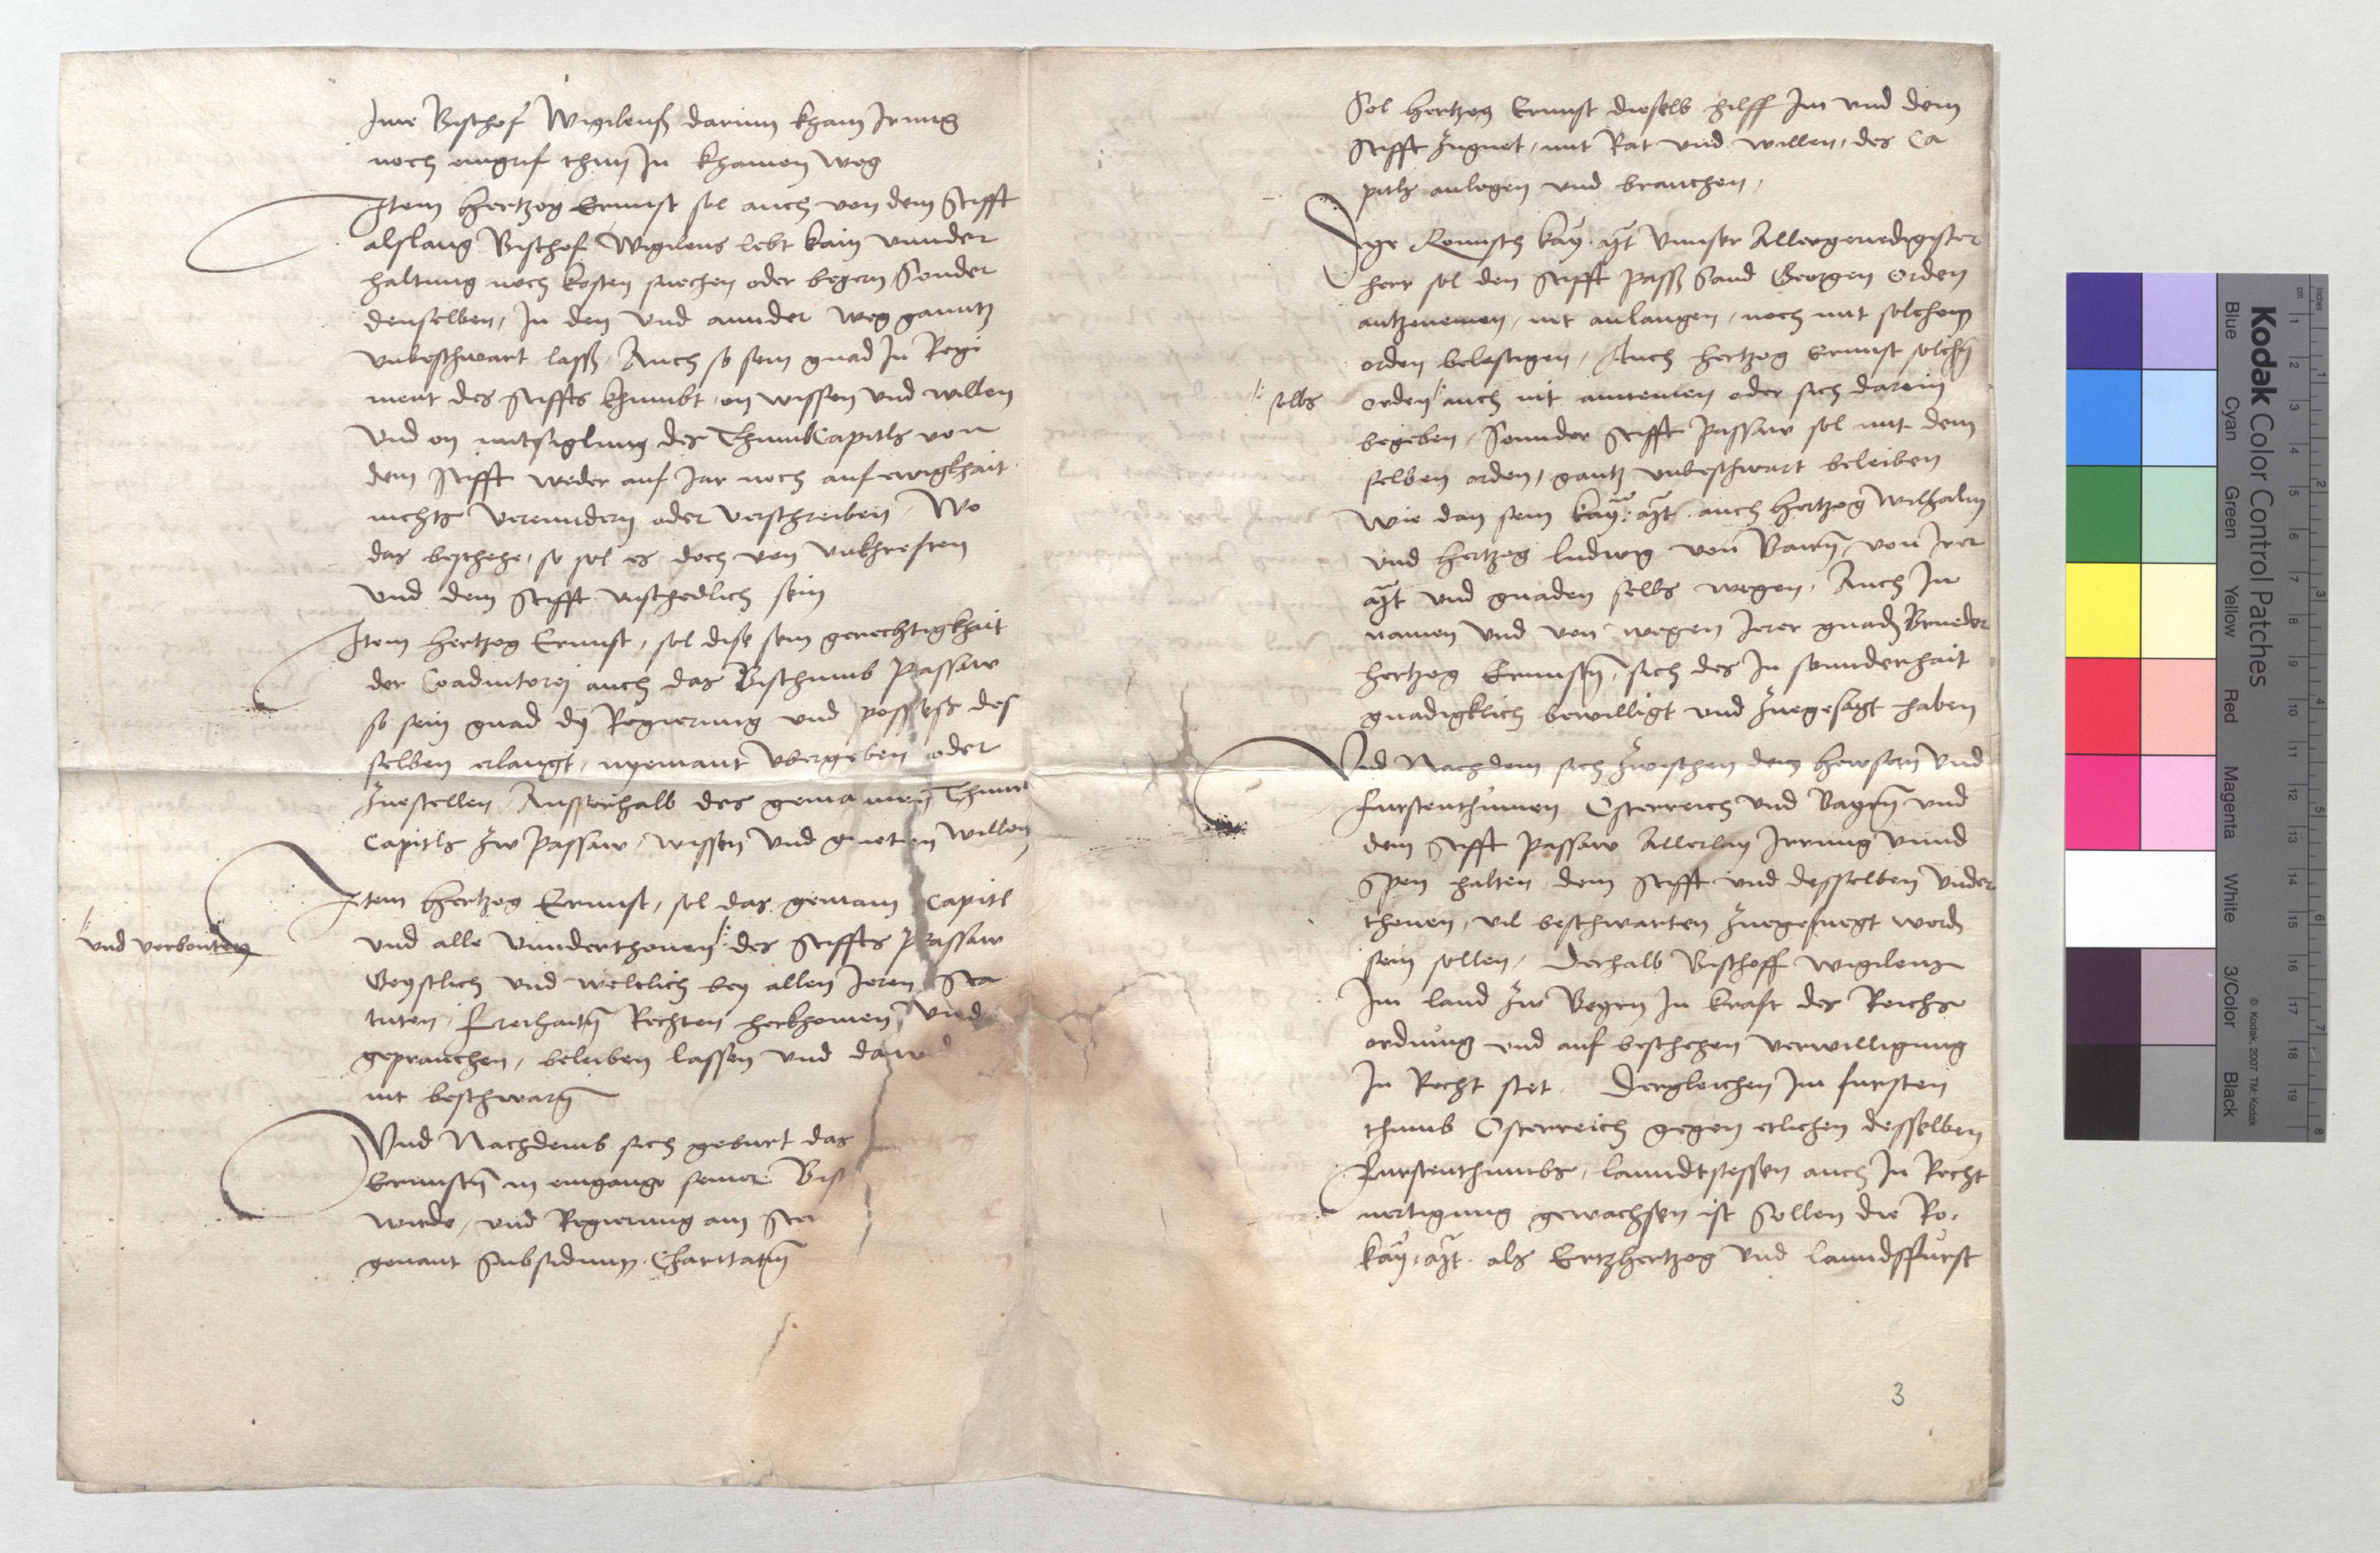 Ime Bischof Wigilenß darinn kham Irrung
noch eingrif thun In khainen weg
Item Hertzog Ernnst sol auch von dem Stifft
alslang Bischof Wigilens lebt kain vnnder
haltung noch kosten suechen oder begern Sonder
denselben, In den Vnd annder weg ganntz
vnbeschwart lassñ, Auch so sein gnad In Regi
ment des Stiffts khumbt, on wissen vnd willen
Vnd on mitsiglung des ThumbCapitls von
dem Stifft weder auf Jar noch auf ewigkhait
nichts Verenndern oder Verschreiben, Wo
das beschehe, so sol es doch von vnkhrefften
Vnd dem Stifft vnschedlich sein
Item Hertzog Ernnst, sol dise sein gerechtigkhait
der Coadiutorej auch das Bischtumb Passaw
so sein gnad dÿ Regierung vnd possess des
selben erlangt, nyemant Vbergeben oder
Zuestellen, Ausserhalb des gemainen Thumb
Capitls Zw Passaw, wissen Vnd gueten willen
Item Hertzog Ernnst, sol das gemain Capitl
vnd verbonten
vnd alle Vnnderthonen des Stiffts Passaw
Geystlich vnd weltlich bey allen Jeren Sta
tuten, Freihaitn Rechten herkhomen vnd
geprauchen, beleiben lassen vnd dawid
nit beschwarn
Vnd Nachdemb sich geburt das
Ernnstn in eingange seiner Bist
wirde, vnd Regierung am Stei
genant Subsidium Charitatiuum
Sol Hertzog Ernnst dieselb hilff Im vnd dem
Stifft Zuguet, mit Rat vnd willen, des Ca
pitls anlegen vnd brauchen,
Dye Romisch kaÿ. Mt Vnnser Allergenedigister
herr sol den Stifft Passaw Sand Georgen Orden
antzenemen, nit anlangen, noch mit solchem
orden belestigen, Auch Hertzog Ernnst solchn
selbs
orden auch nit annemen oder sich darein
begeben, Sonnder Stifft Passaw sol mit dem
selben orden, gantz vnbeschwart beleiben
Wie dan sein kaÿ: Mt. auch Hertzog Wilhalm
vnd Hertzog Ludwig von Bairn, von Irer
Mt vnd gnaden selbs wegen, Auch In
namen vnd von wegen Jerer gnadn Brueder
Hertzog Ernnstn, sich des In sonnderhait
gnadigklich bewilligt vnd Zuegesagt haben
Vnd Nachdem sich Zwischen den hewsern Vnd
Furstenthumen Osterreich vnd Bayrn vnd
dem Stifft Passaw Allerlay Irrung vnnd
Spen halten, dem Stifft vnd desselben Vnder
thonen, vil beschwarten Zuegefuegt wordn
sein sollen, Derhalb Bischoff Wigilens
Im land Zw Beyrn In kraft der Reichs
ordnung vnd auf beschehen verwilligung
In Recht stet. Dergleichen Im fursten
thumb Osterreich gegen etlichen desselben
Furstenthumbs, lanndtsessen auch In Recht
uertigung gewachsen ist Sollen die Ro.
kaÿ. Mt. als Ertzhertzog Vnd lanndsfurst
3
Kodak Color Control Patches
Blue Cyan Green Yellow Red Magenta White 3/Color Black
© Kodak, 2007 TM: Kodak
inches 1 2 3 4 5 6 7 8
cm 1 2 3 4 5 6 7 8 9 10 11 12 13 14 15 16 17 18 19